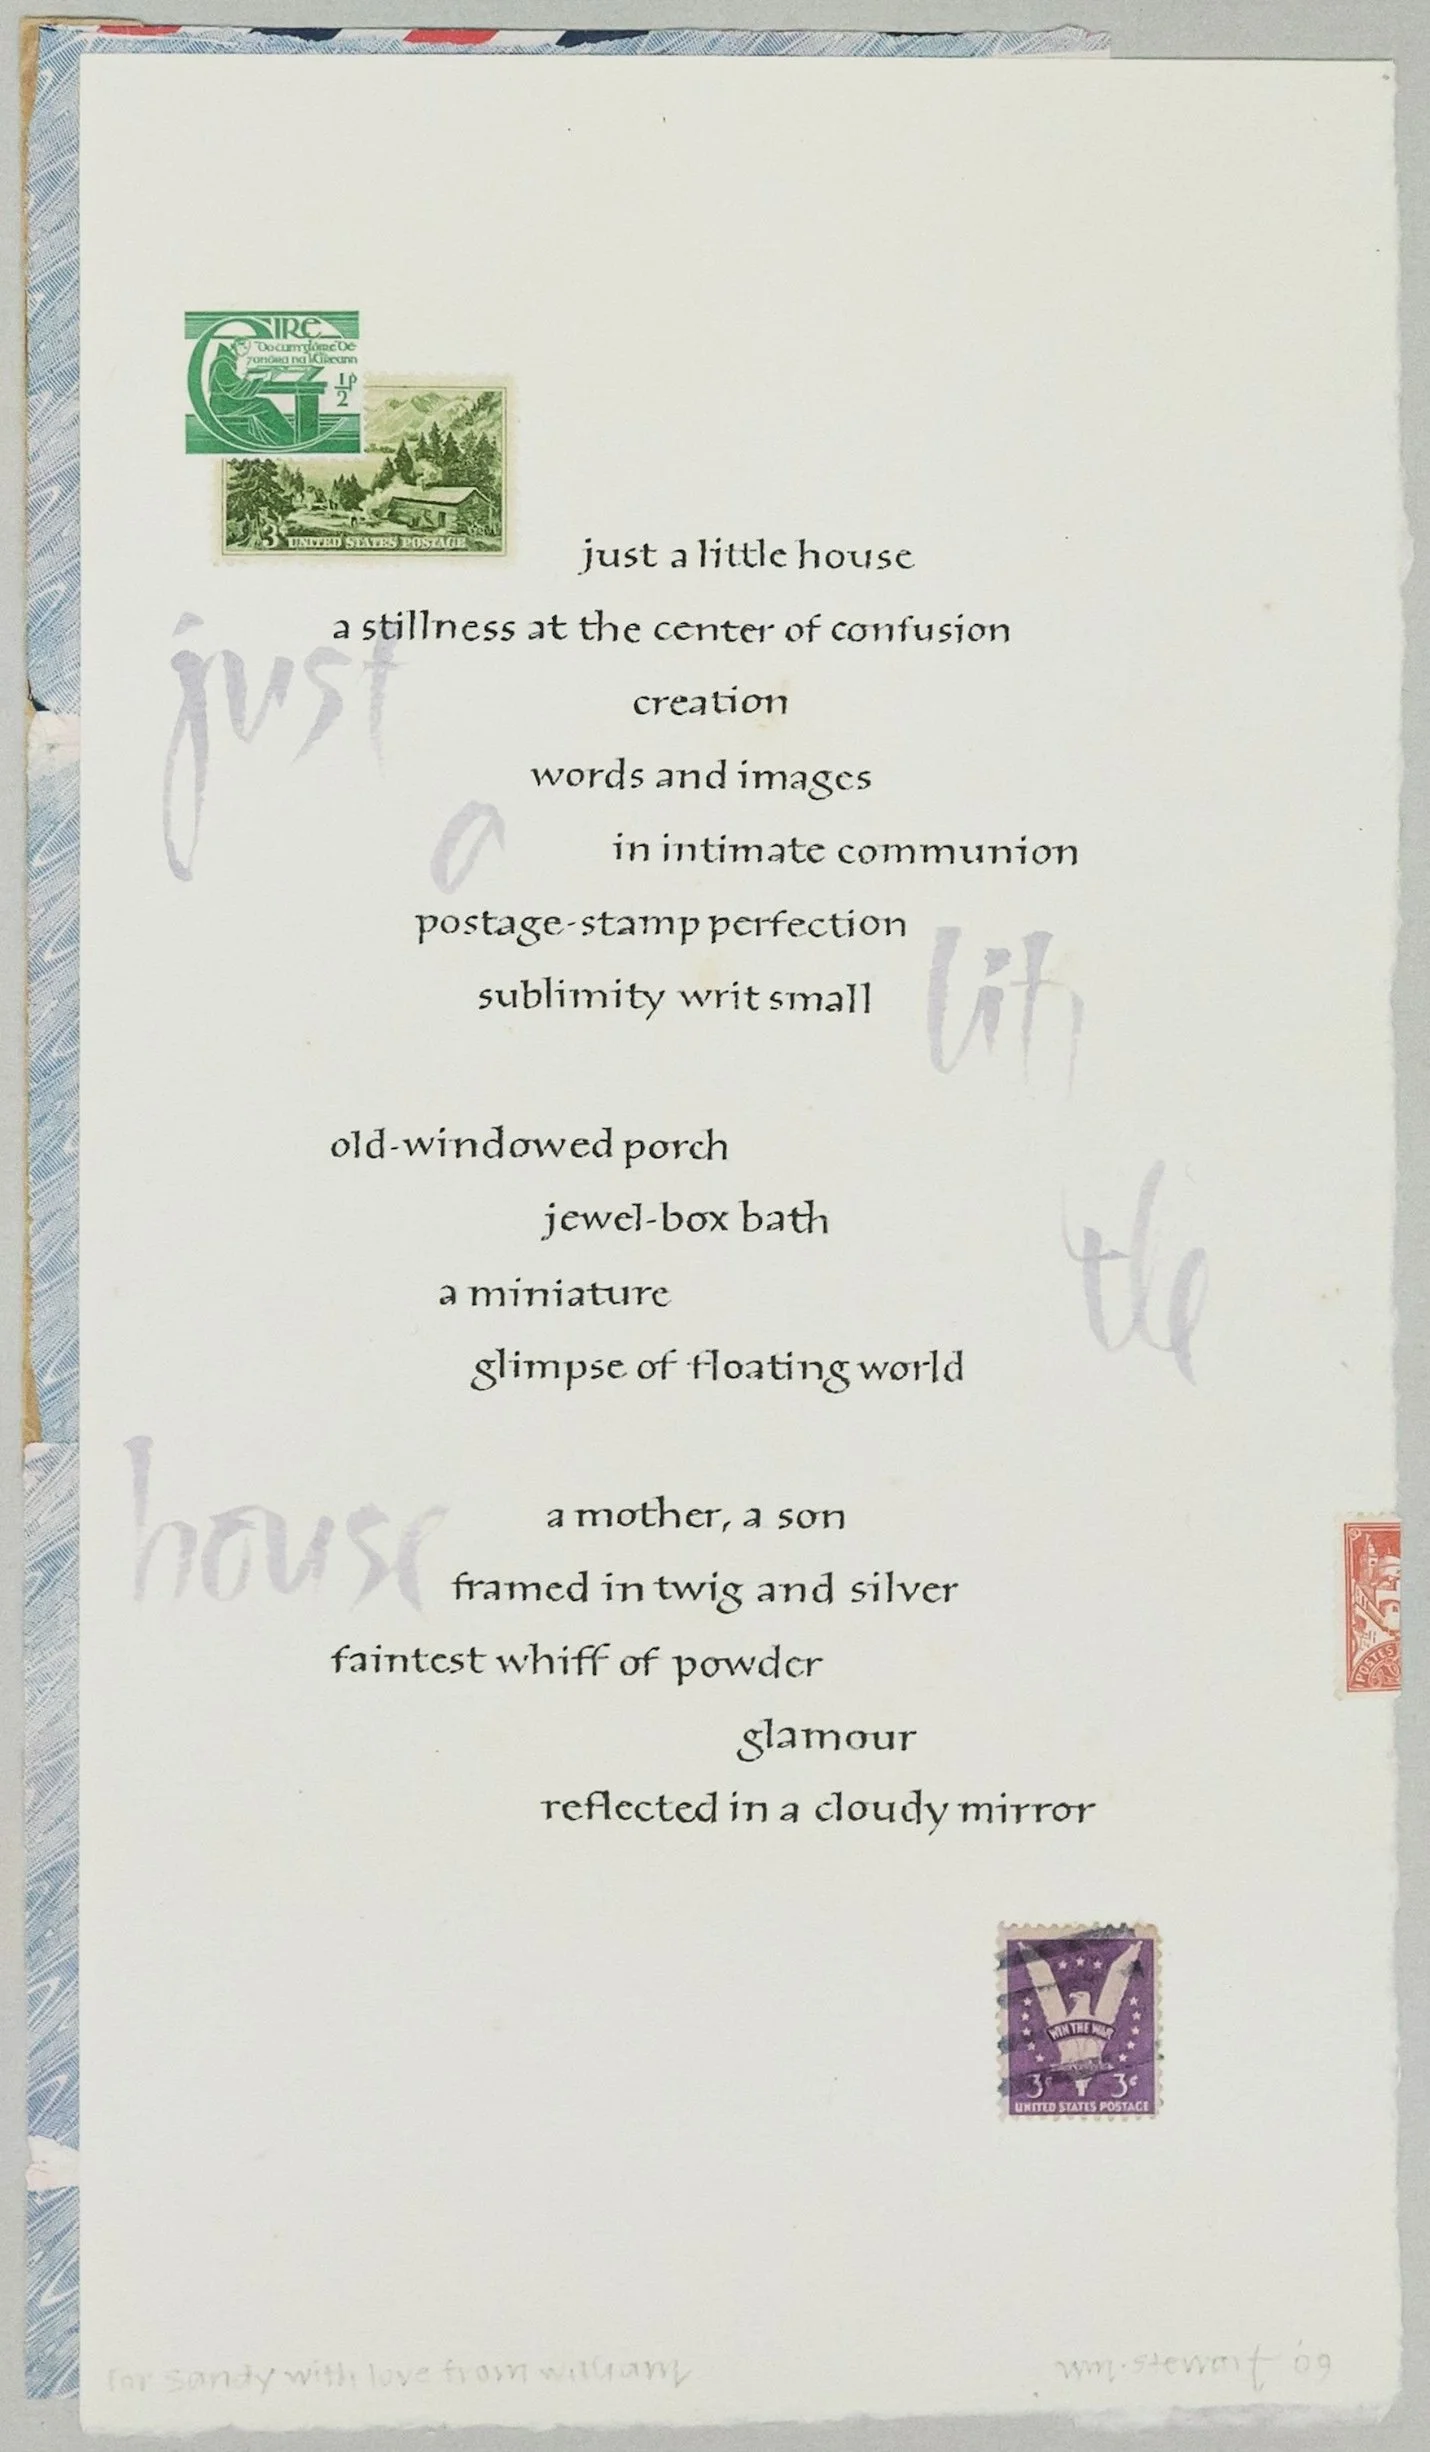 EIRE
Do cum glóire Dé
7 onóra na hÉireann
½p
3¢ UNITED STATES POSTAGE
just a little house
a stillness at the center of confusion
creation
words and images
in intimate communion
postage-stamp perfection
sublimity writ small
old-windowed porch
jewel-box bath
a miniature
glimpse of floating world
a mother, a son
framed in twig and silver
faintest whiff of powder
glamour
reflected in a cloudy mirror
just
a
lit
tle
house
POSTES
WIN THE WAR
3¢ 3¢
UNITED STATES POSTAGE
for sandy with love from william
wm. stewart '09